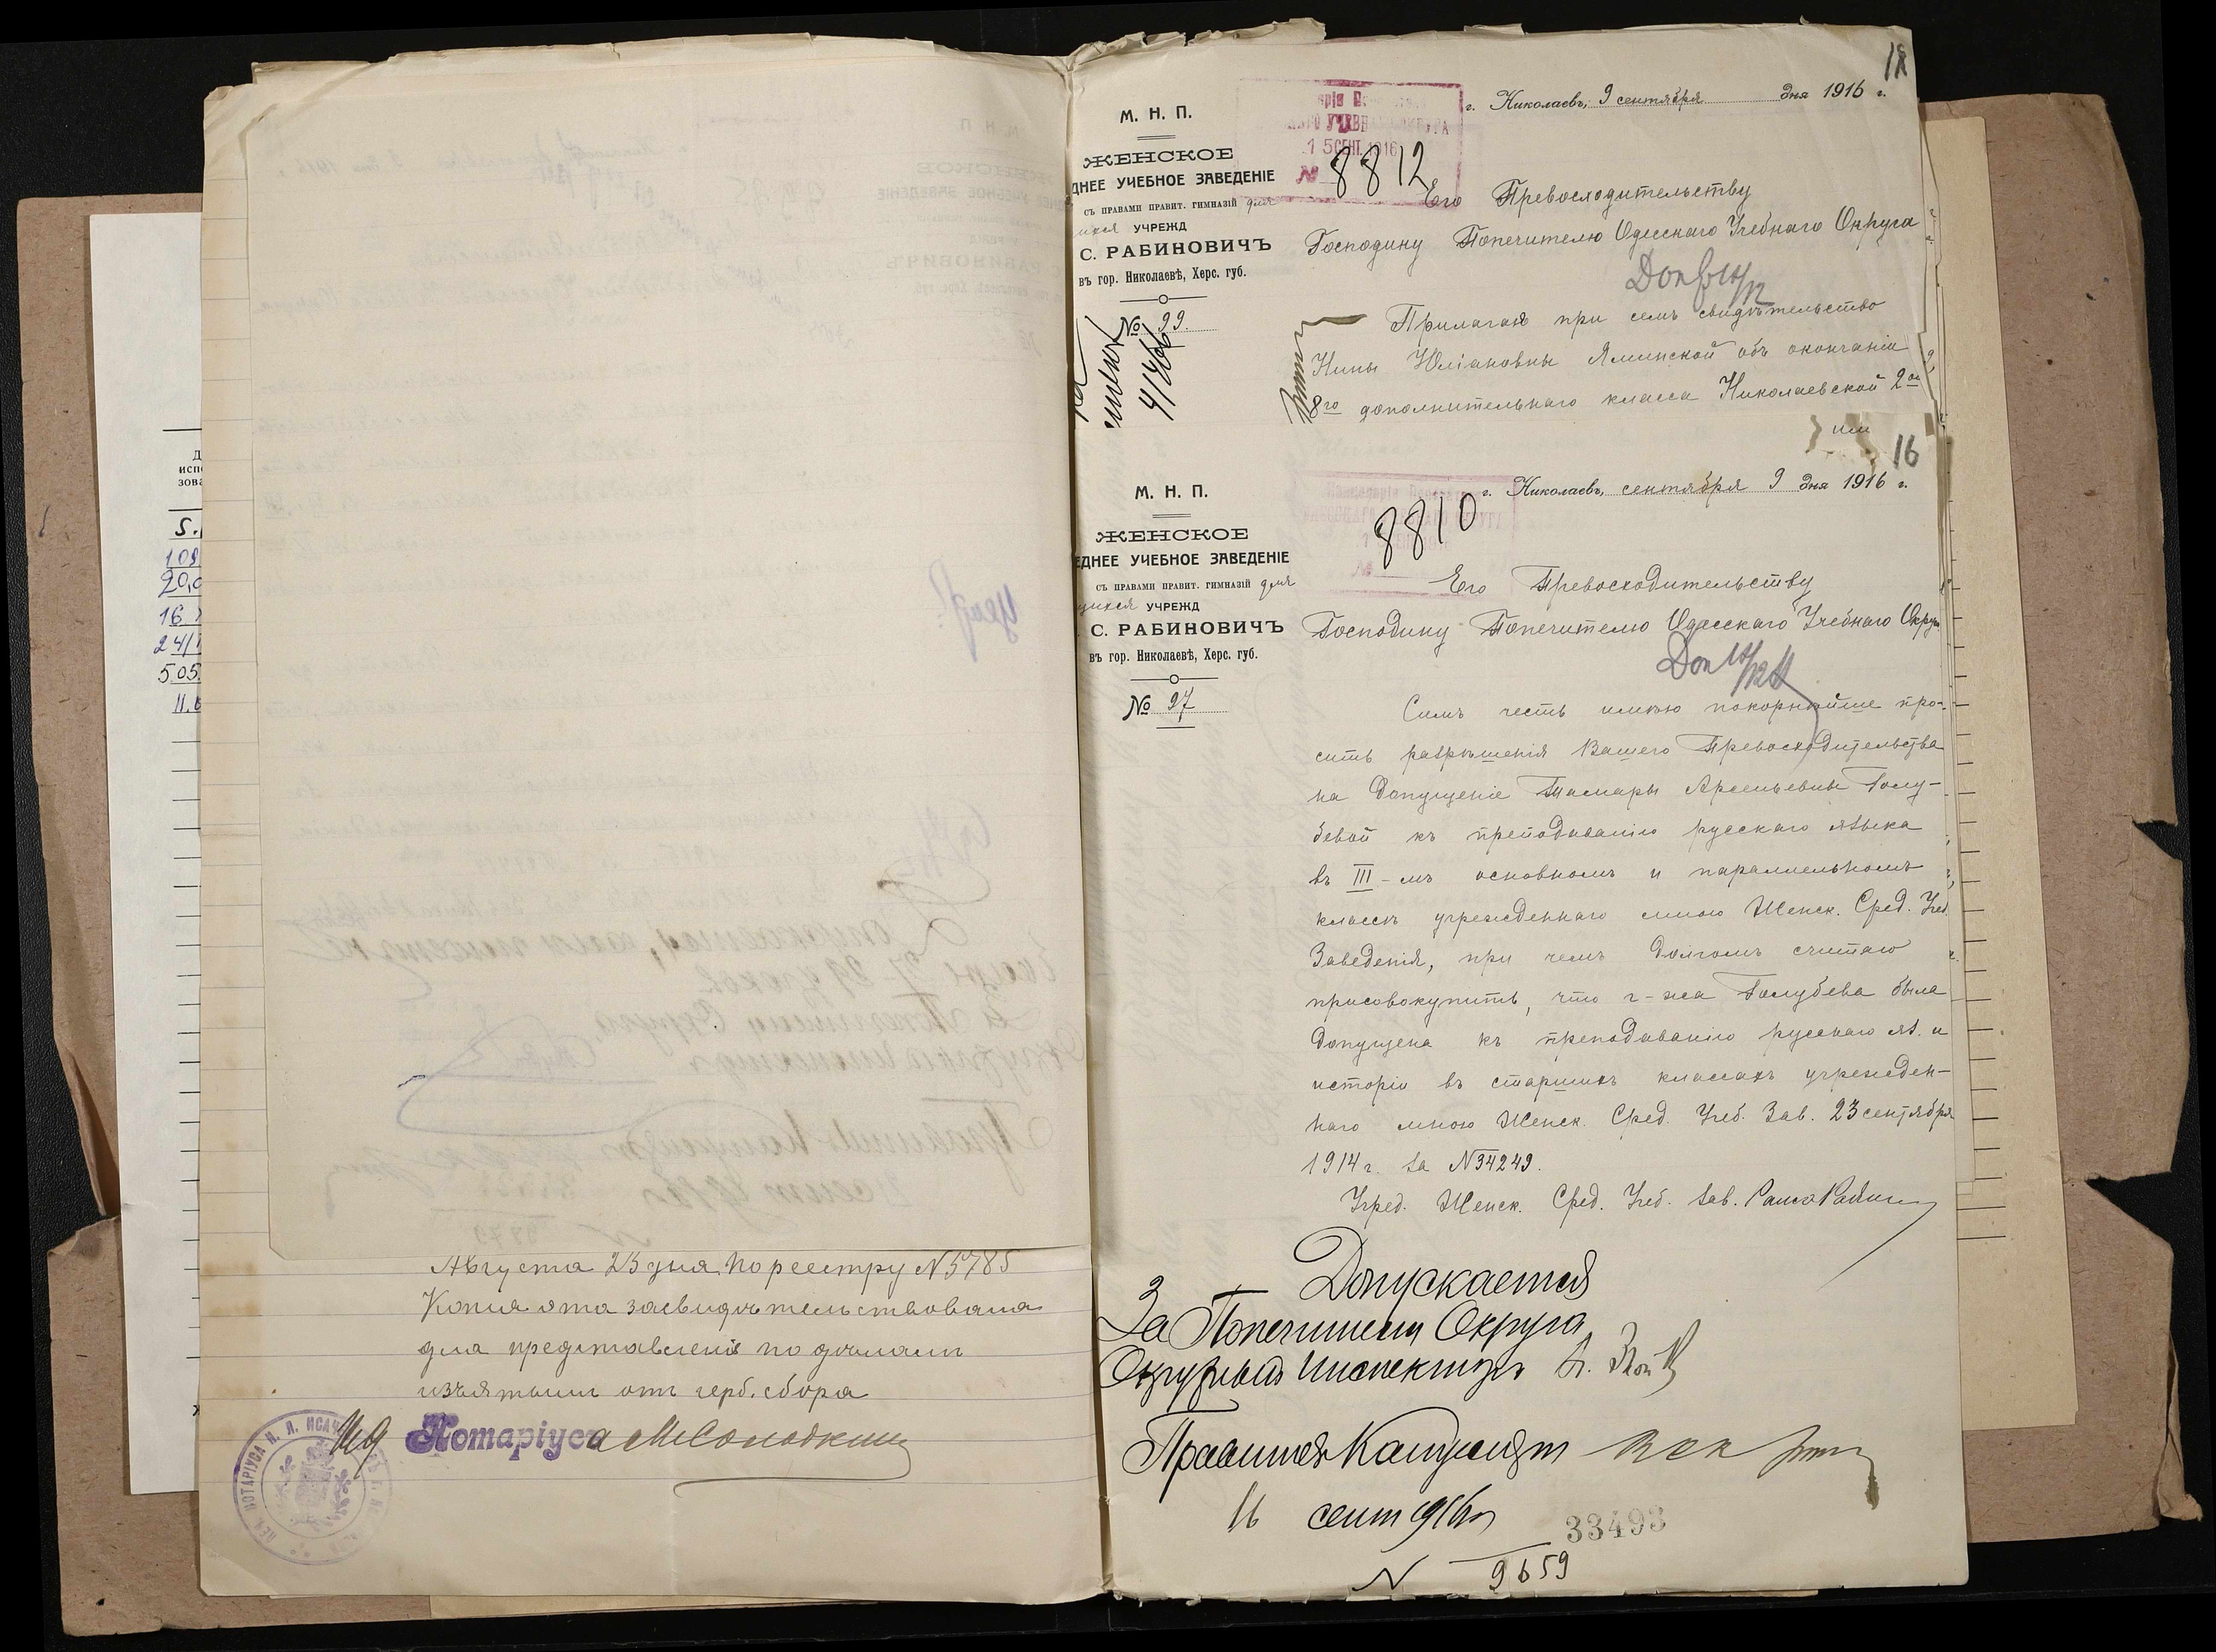 Д
исп
зов
109
20,0
16
24/1
505
11.0
Августа 25 дня, по реестру N5785
Копия эта засвидѣтельствована
для представленія по дѣламъ
изъятымъ отъ герб. сбора
ИД Нотаріуса МСолодкин
НОТАРІУСА Н. Я. ИСАЧ
18
М. Н. П.
ЖЕНСКОЕ
ДНЕЕ УЧЕБНОЕ ЗАВЕДЕНІЕ
СЪ ПРАВАМИ ПРАВИТ. ГИМНАЗІЙ для
щихся УЧРЕЖД
С. РАБИНОВИЧЪ
въ гор. Николаевѣ, Херс. губ.
№ 99.
15 СЕНТ. 1916
№ 8812
г. Николаевъ, 9 сентября дня 1916 г.
Его Превосходительству
Господину Попечителю Одесскаго Учебнаго Округа
Прилагая при семъ свидѣтельство
Нины Юліановны Яминской объ окончаніи
8го дополнительнаго класса Николаевской 2ой
16
М. Н. П.
ЖЕНСКОЕ
ЕДНЕЕ УЧЕБНОЕ ЗАВЕДЕНІЕ
СЪ ПРАВАМИ ПРАВИТ. ГИМНАЗІЙ для
щихся УЧРЕЖД
С. РАБИНОВИЧЪ
въ гор. Николаевѣ, Херс. губ.
№ 97
8810
г. Николаевъ, сентября 9 дня 1916 г.
Его Превосходительству
Господину Попечителю Одесскаго Учебнаго Округ
Симъ честь имѣю покорнѣйше про-
сить разрѣшенія Вашего Превосходительства
на допущеніе Тамары Арсеньевны Голу-
бевой къ преподаванію русскаго языка
въ III-мъ основномъ и параллельномъ
классѣ учрежденнаго мною Женск. Сред. Учеб.
Заведенія, при чемъ долгомъ считаю
присовокупить, что г-жа Голубева была
допущена къ преподаванію русскаго яз. и
исторіи въ старшихъ классахъ учрежден-
наго мною Женск. Сред. Учеб. Зав. 23 сентября
1914 г. за N34249.
Учред. Женск. Сред. Учеб. Зав. Раиса Рабин
Допускается
За Попечителя Округа
Окружный Инспекторъ
Правитель Канцеляріи
16 сент 1916 г
33493
N 9659